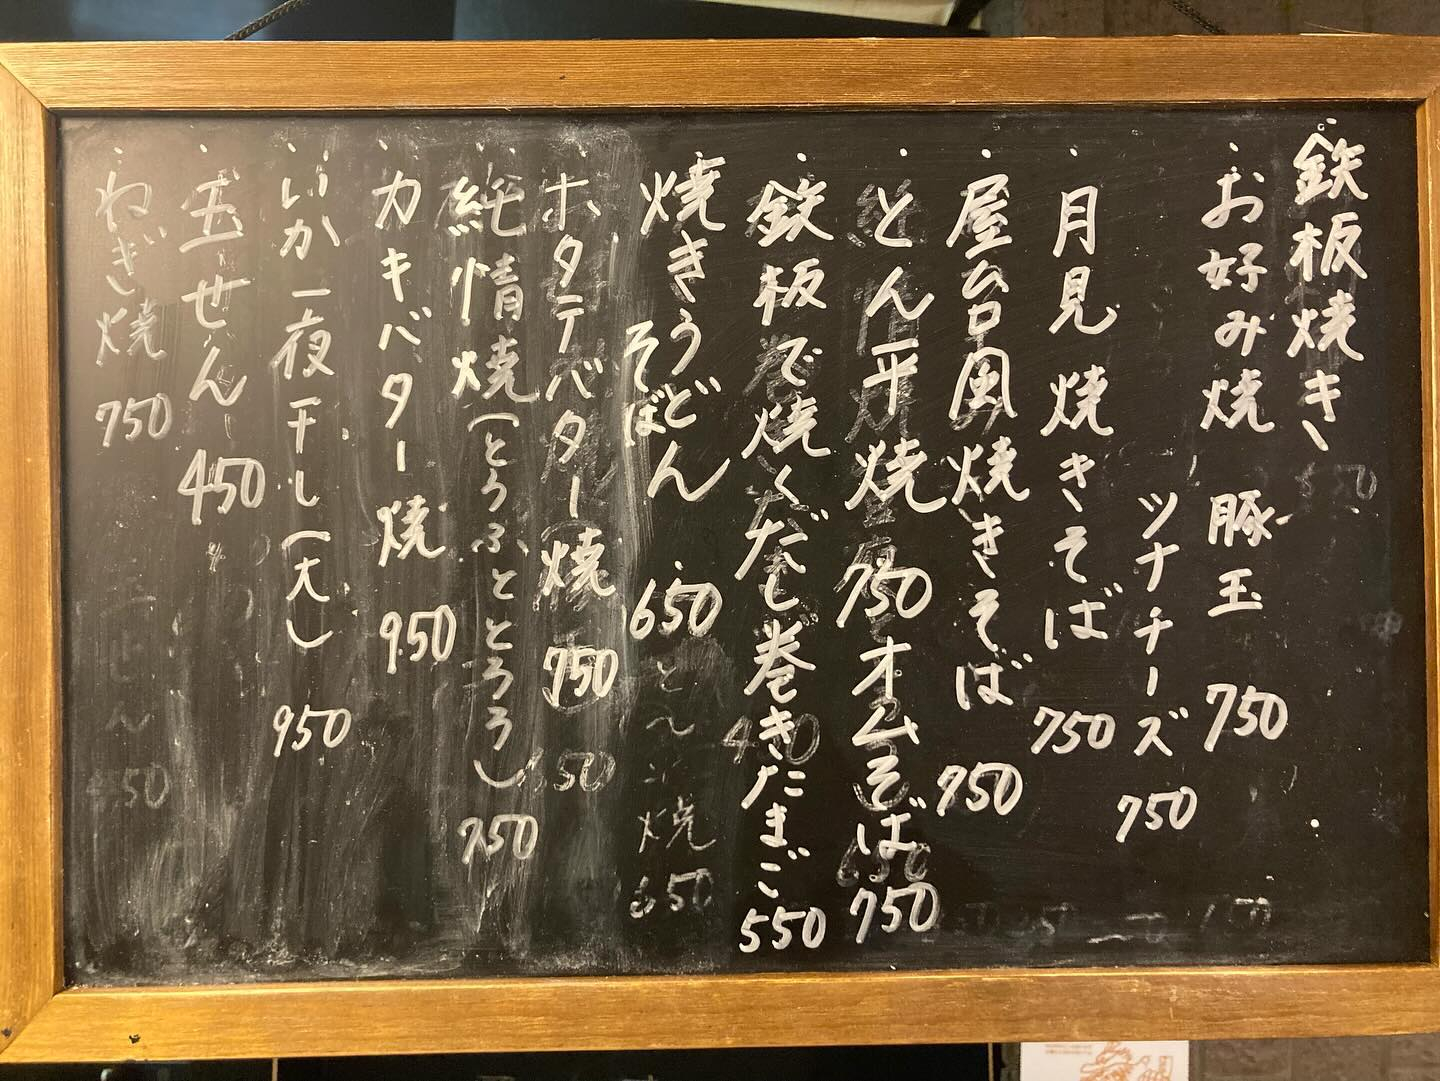 鉄板焼き
お好み焼 豚玉 750
ツナチーズ 750
月見焼きそば 750
屋台風焼きそば 750
とん平焼 750 オムそば 750
鉄板で焼くだし巻きたまご 550
焼きうどん 650
そば
ホタテバター焼 750
純情焼(とうふととろろ) 750
カキバター焼 950
いか一夜干し(大) 950
玉せん 450
ねぎ焼 750